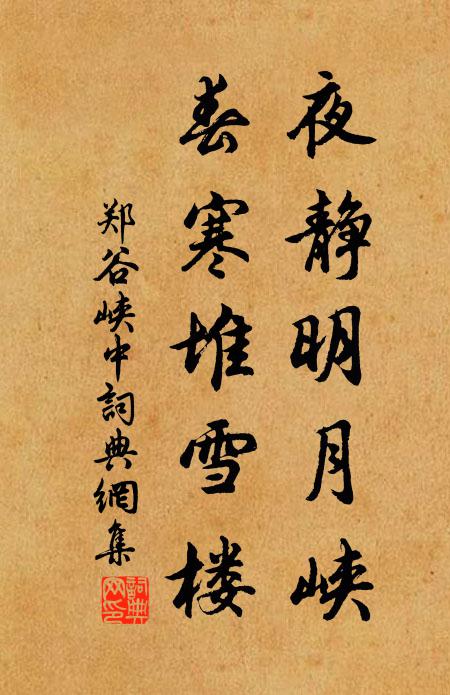 夜静明月峡
春寒堆雪楼
郑谷峡中詞典網集
詞典网印